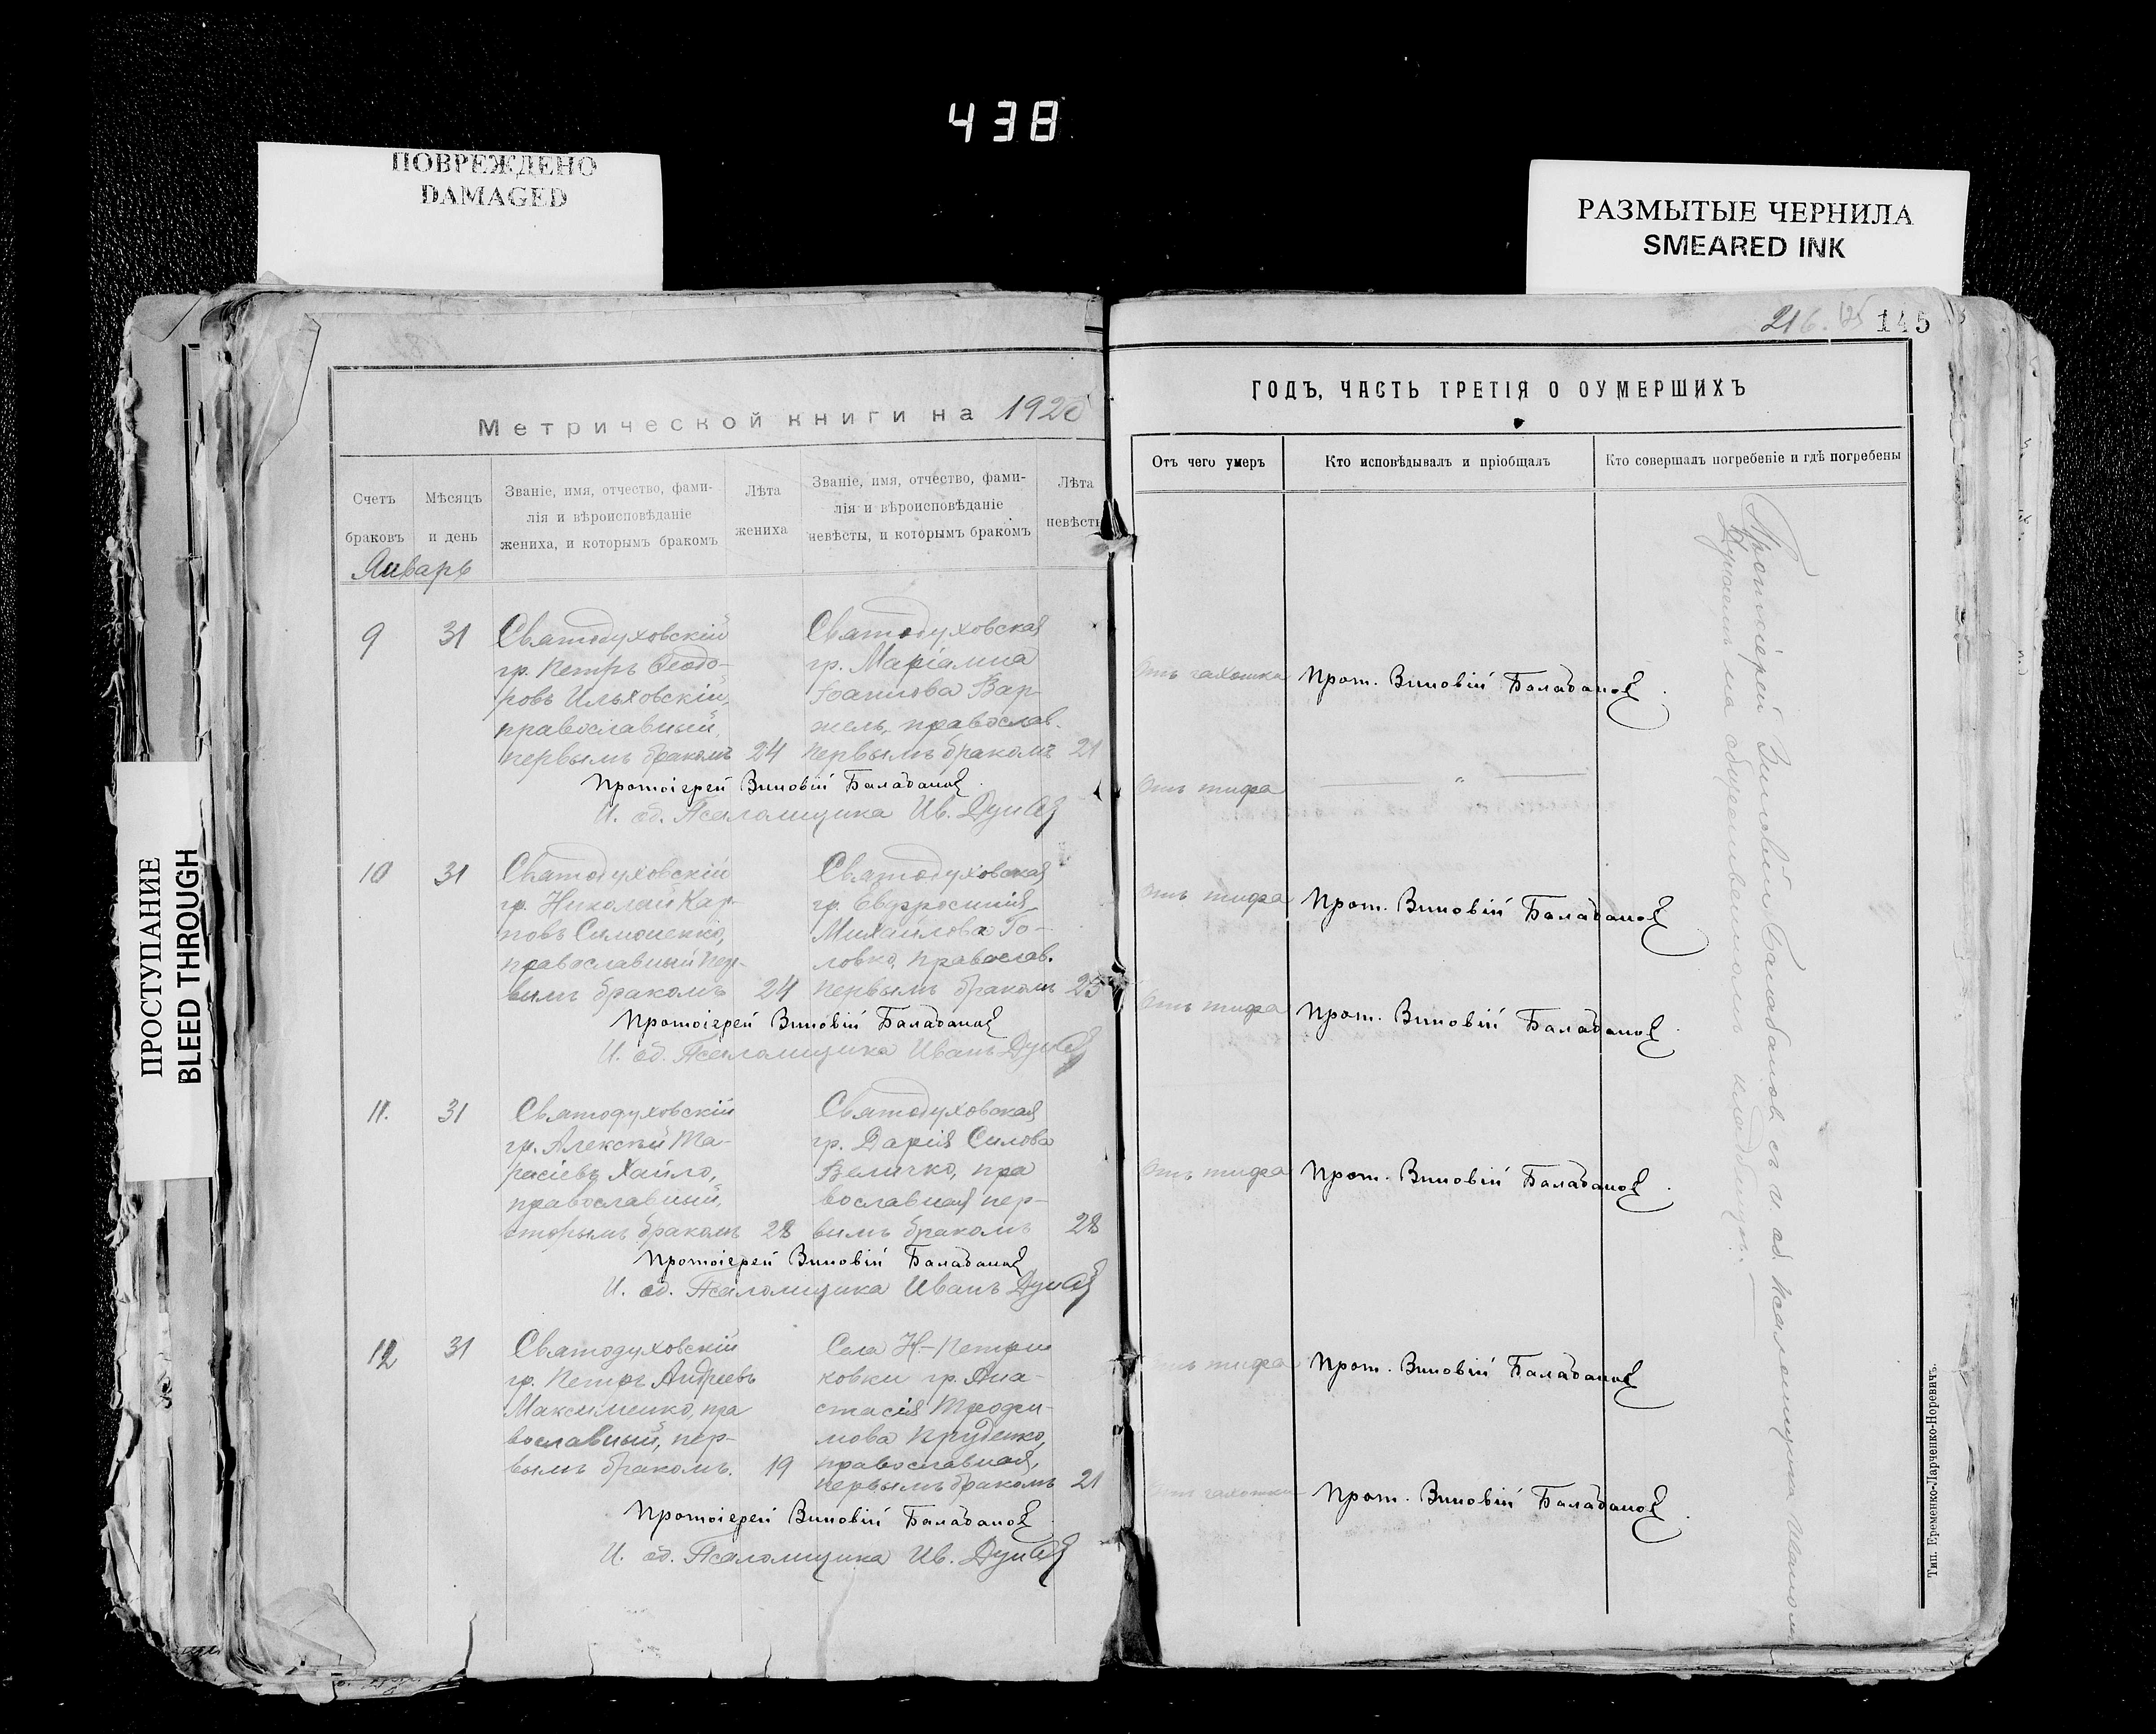 438
ПОВРЕЖДЕНО
DAMAGED
РАЗМЫТЫЕ ЧЕРНИЛА
SMEARED INK
ПРОСТУПАНИЕ
BLEED THROUGH
Метрической книги на 1920
Счетъ браковъ
Мѣсяцъ и день
Званіе, имя, отчество, фами-
лія и вѣроисповѣданіе
жениха, и которымъ бракомъ
Лѣта жениха
Званіе, имя, отчество, фами-
лія и вѣроисповѣданіе
невѣсты, и которымъ бракомъ
Лѣта невѣсты
Январь
9 31
Святодуховскій
гр. Петръ Ѳеодо-
ровъ Ильховскій,
православный,
первымъ бракомъ 24
Святодуховская
гр. Маріамна
Іоаннова Вар-
жель, православ.
первымъ бракомъ 21
Протоіерей Виновій Балабанов
И. об. Псаломщика Ив.
10 31
Святодуховскій
гр. Николай Кар-
повъ Симоненко,
православный пер-
вымъ бракомъ 24
Святодуховская
гр. Евфросинія
Михайлова Го-
ловко, православ.
первымъ бракомъ 25
Протоіерей Виновій Балабанов
И. об. Псаломщика Иванъ
11. 31
Святодуховскій
гр. Алексѣй Та-
расіевъ Хайло,
православный,
вторымъ бракомъ 28
Святодуховская
гр. Дарія Силова
Величко, пра
вославная пер-
вымъ бракомъ 28
Протоіерей Виновій Балабанов
И. об. Псаломщика Иванъ
12 31
Святодуховскій
гр. Петръ Андреевъ
Максименко, пра
вославный, пер-
вымъ бракомъ. 19
Села Н.-Петри
ковки гр. Ана-
стасія Трофи-
мова Пруденко,
православная,
первымъ бракомъ 21
Протоіерей Виновій Балабанов
И. об. Псаломщика Ив.
216. 125 145
ГОДЪ, ЧАСТЬ ТРЕТІЯ О ОУМЕРШИХЪ
Отъ чего умеръ
Кто исповѣдывалъ и пріобщалъ
Кто совершалъ погребеніе и гдѣ погребены
Отъ чахотки Прот. Виновій Балабанов
Отъ тифа — " —
Отъ тифа Прот. Виновій Балабанов
Отъ тифа Прот. Виновій Балабанов
Отъ тифа Прот. Виновій Балабанов
Отъ тифа Прот. Виновій Балабанов
Отъ чахотки Прот. Виновій Балабанов
Протоіерей Виновій Балабановъ съ и. об. Псаломщика Иваномъ
на общественномъ кладбищѣ.
Тип. Еременко-Ларченко-Норевичъ.